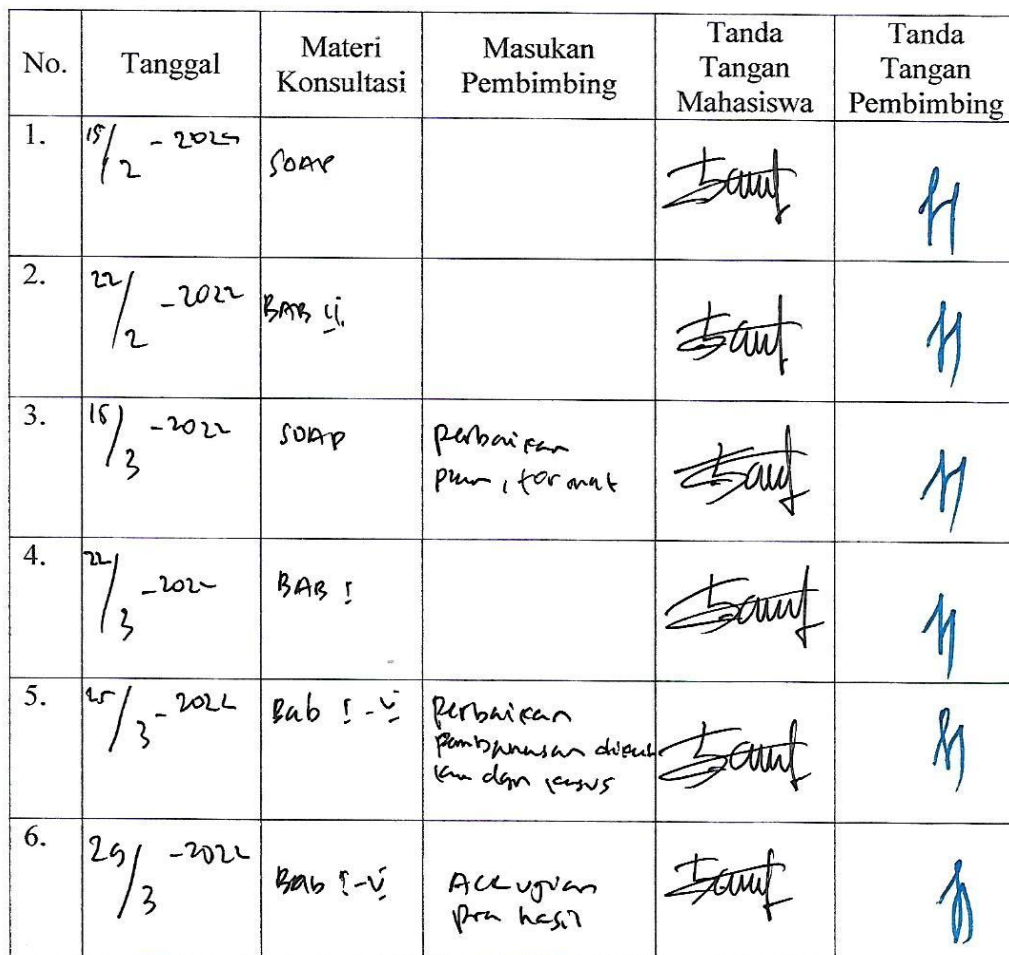 No. Tanggal Materi Konsultasi Masukan Pembimbing Tanda Tangan Mahasiswa Tanda Tangan Pembimbing
1. 15/2 - 2022 SOAP
2. 22/2 - 2022 BAB II
3. 15/3 - 2022 SOAP perbaikan
, format
4. 22/3 - 2022 BAB I
5. 25/3 - 2022 Bab I - V Perbaikan
pembahasan
kan dgn kasus
6. 29/3 - 2022 Bab I - V ACC ujian
pra hasil